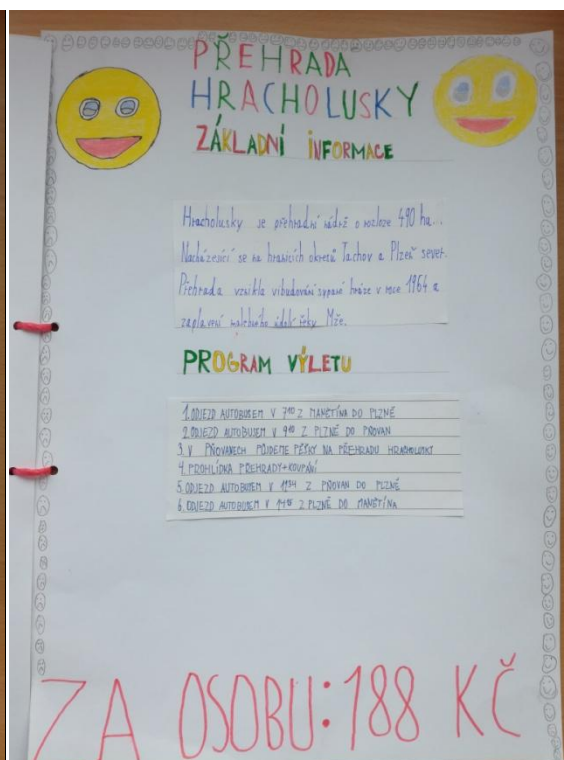 PŘEHRADA
HRACHOLUSKY
ZÁKLADNÍ INFORMACE
Hracholusky se přehradní nádrž o rozloze 490 ha...
Nacházející se na hranicích okresů Tachov a Plzeň sever.
Přehrada vznikla vibudování sypané hráze v roce 1964 a
zaplavení malebného údolí řeky Mže.
PROGRAM VÝLETU
1. ODJEZD AUTOBUSEM V 7 Z MANĚTÍNA DO PLZNĚ
2. ODJEZD AUTOBUSEM V 9 Z PLZNĚ DO PŇOVAN
3. V PŇOVANECH PŮJDEME PĚŠKY NA PŘEHRADU HRACHOLUSKY
4. PROHLÍDKA PŘEHRADY+KOUPÁNÍ
5. ODJEZD AUTOBUSEM V Z PŇOVAN DO PLZNĚ
6. ODJEZD AUTOBUSEM V Z PLZNĚ DO MANĚTÍNA
ZA OSOBU: 188 KČ